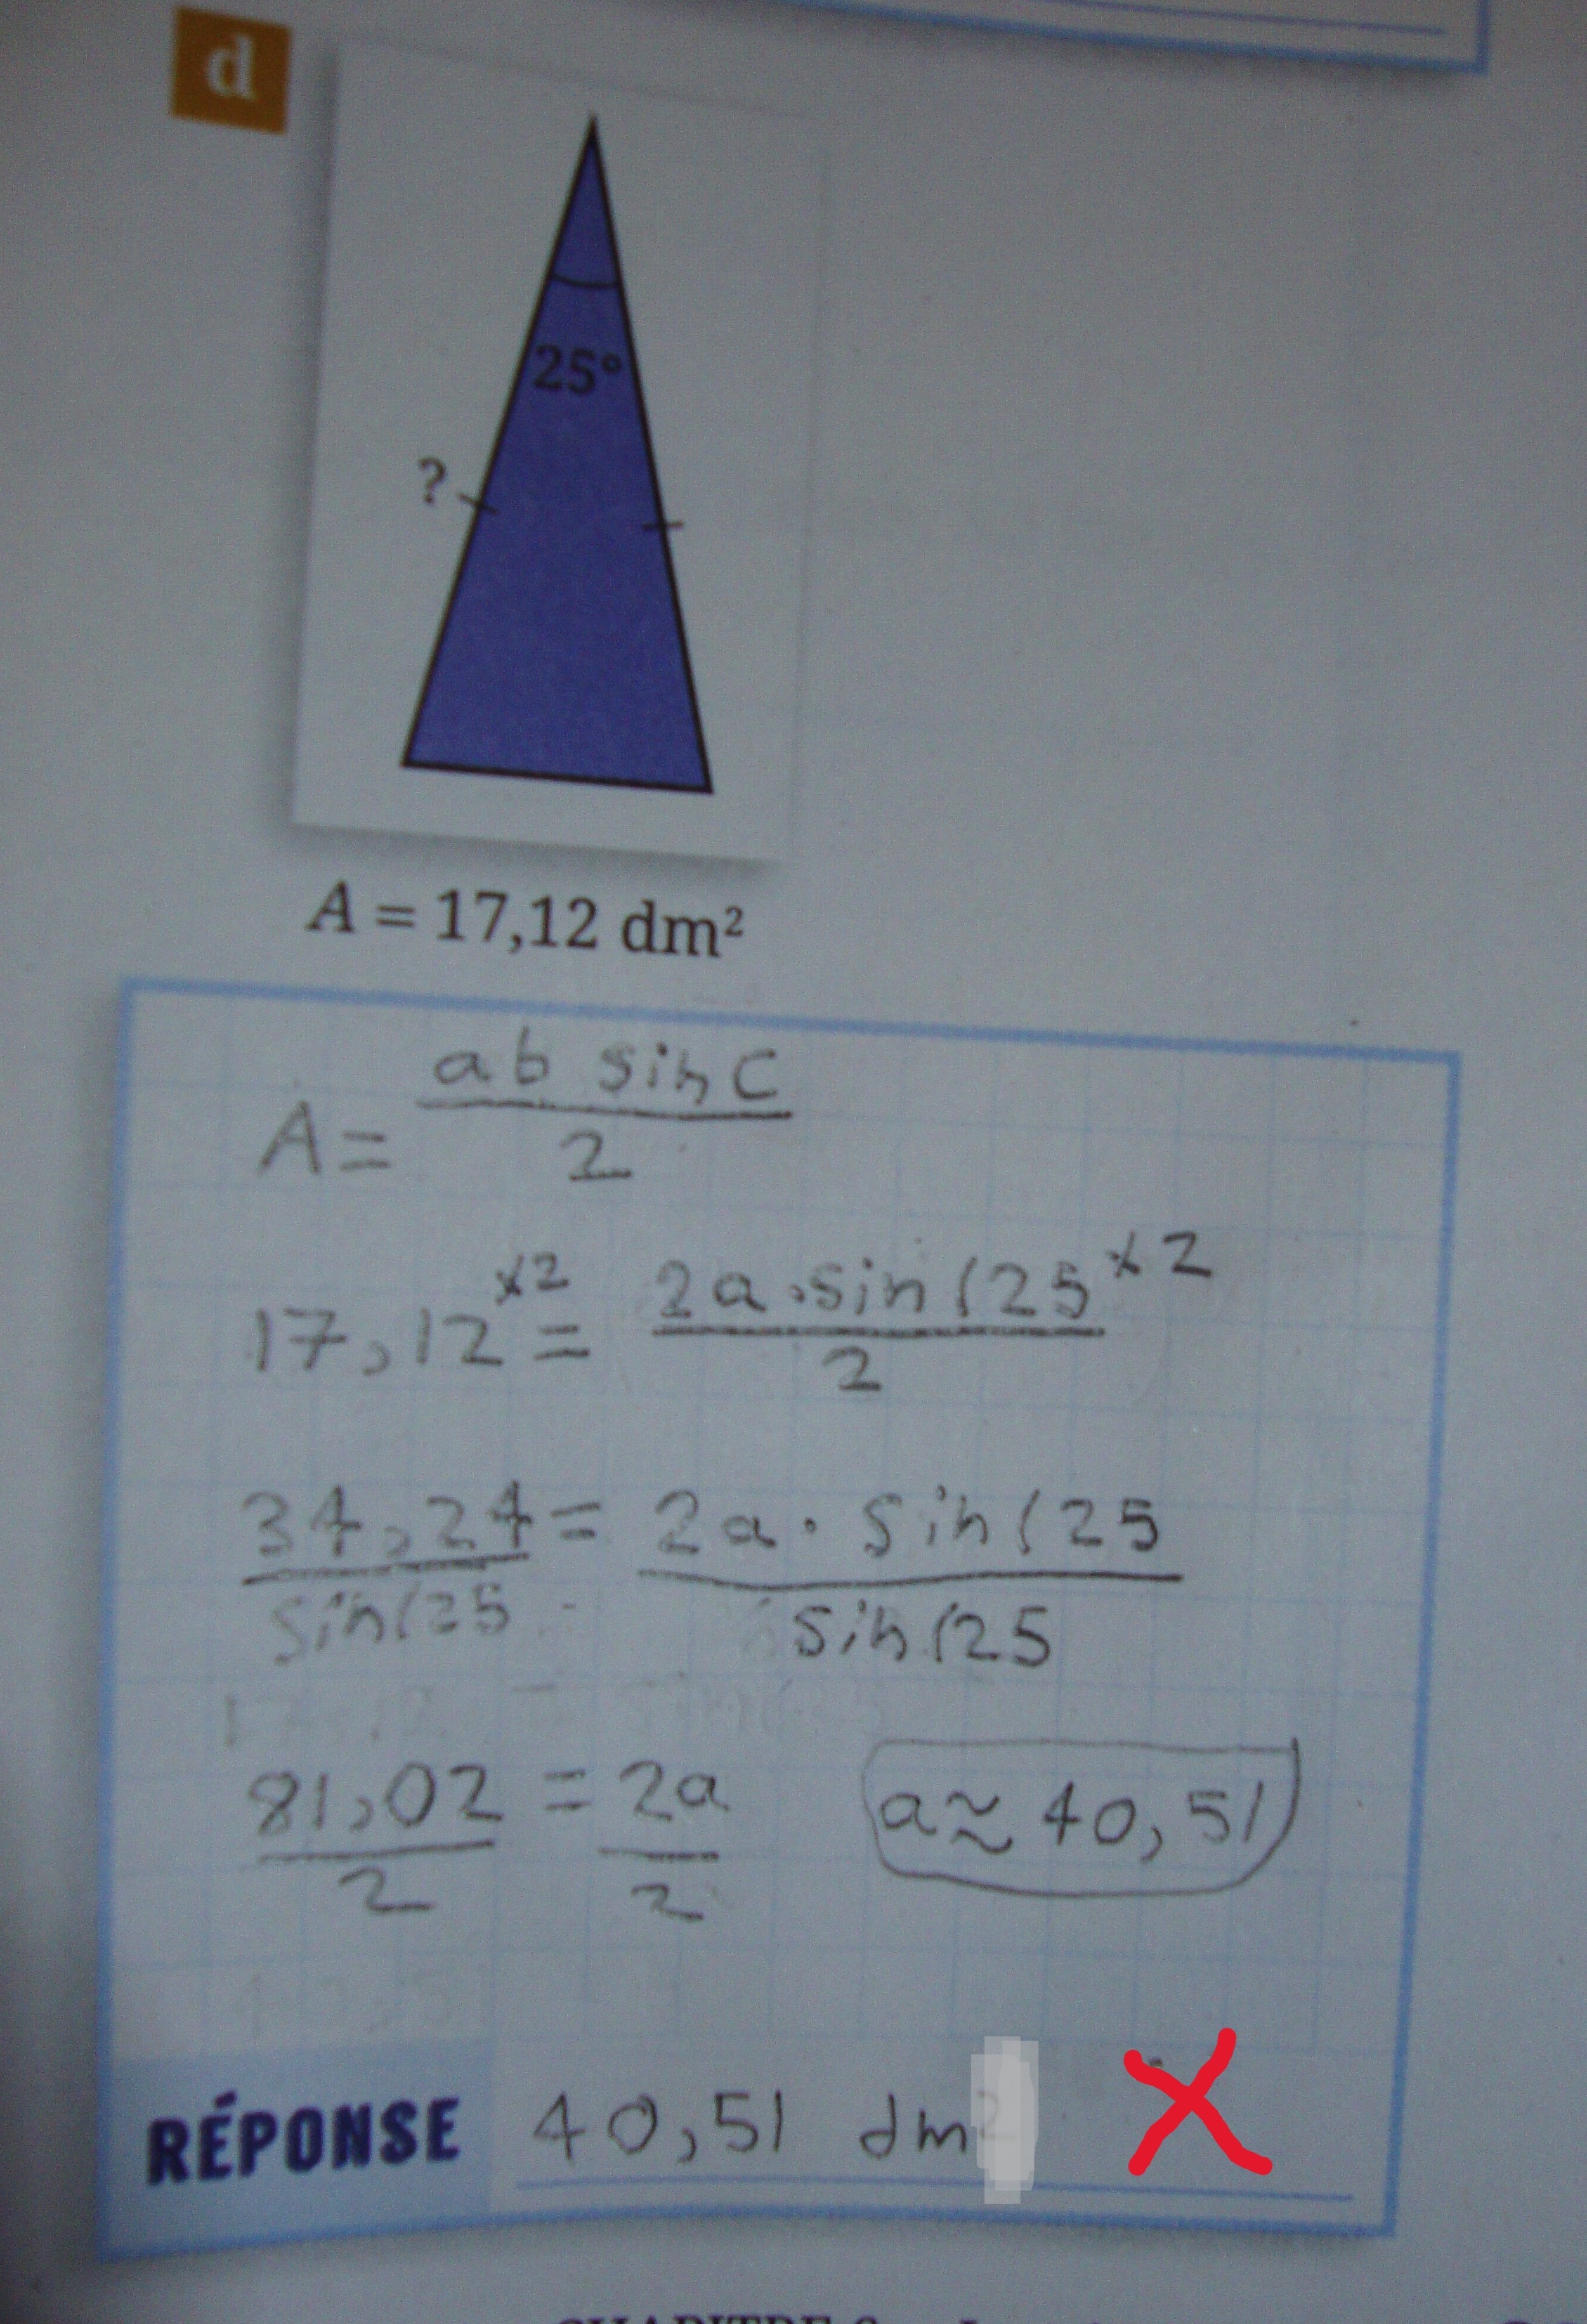 d
25°
?
A = 17,12 dm²
A = ab sin C / 2
17,12 ×2 = 2a · sin(25 ×2 / 2
34,24 / sin(25 = 2a · sin(25 / sin(25
81,02 / 2 = 2a / 2
a ≈ 40,51
RÉPONSE 40,51 dm